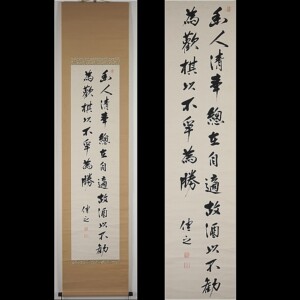 幽人清事總在自適故酒以不勸
為歡棋以不爭為勝
幽人清事總在自適故酒以不勸
為歡棋以不爭為勝